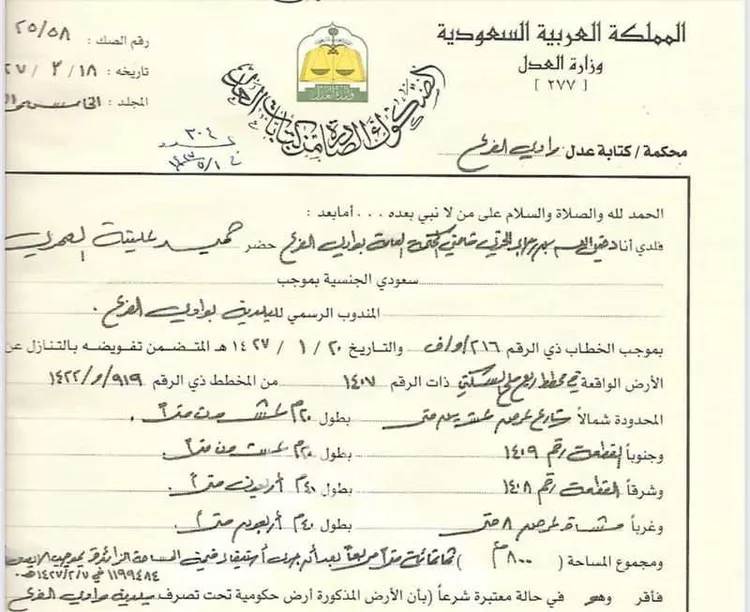 المملكة العربية السعودية
وزارة العدل
[ ٢٧٧ ]
وزارة العدل
الصكوك الصادرة من كتابات العدل
رقم الصك : ٢٥/٥٨
تاريخه : ١٨ / ٣ / ٢٧
المجلد :
عدد ٣٠٤
في ١٤٢٧/٥/١
محكمة / كتابة عدل وادي الفرع
الحمد لله والصلاة والسلام على من لا نبي بعده ... أمابعد :
فلدي أنا قاضي المحكمة العامة بوادي الفرع حضر حميد العمري
سعودي الجنسية بموجب
المندوب الرسمي لبلدية بوادي الفرع .
بموجب الخطاب ذي الرقم ٢١٦/و/ف والتاريخ ٢٠ / ١ / ١٤٢٧ هـ المتضمن تفويضه بالتنازل عن
الأرض الواقعة في مخطط السكني ذات الرقم ١٤٠٧ من المخطط ذي الرقم ٩١٩/و/١٤٢٢
المحدودة شمالاً شارع عرض عشرين متر بطول ٢٠م عشرون متراً .
وجنوباً القطعة رقم ١٤٠٩ بطول ٢٠م عشرون متراً .
وشرقاً القطعة رقم ١٤٠٨ بطول ٤٠م أربعون متراً .
وغرباً مشاة عرض ٨ متر بطول ٤٠م أربعون متراً .
ومجموع المساحة ( ٨٠٠م ) ثمانمائة متراً مربعاً بعد أن جرى استيفاء قيمة المساحة الزائدة بموجب
١١٩٩٤٨٤ في ١٤٢٧/٢/٧هـ
فأقر وهو في حالة معتبرة شرعاً (بأن الأرض المذكورة أرض حكومية تحت تصرف بلدية وادي الفرع